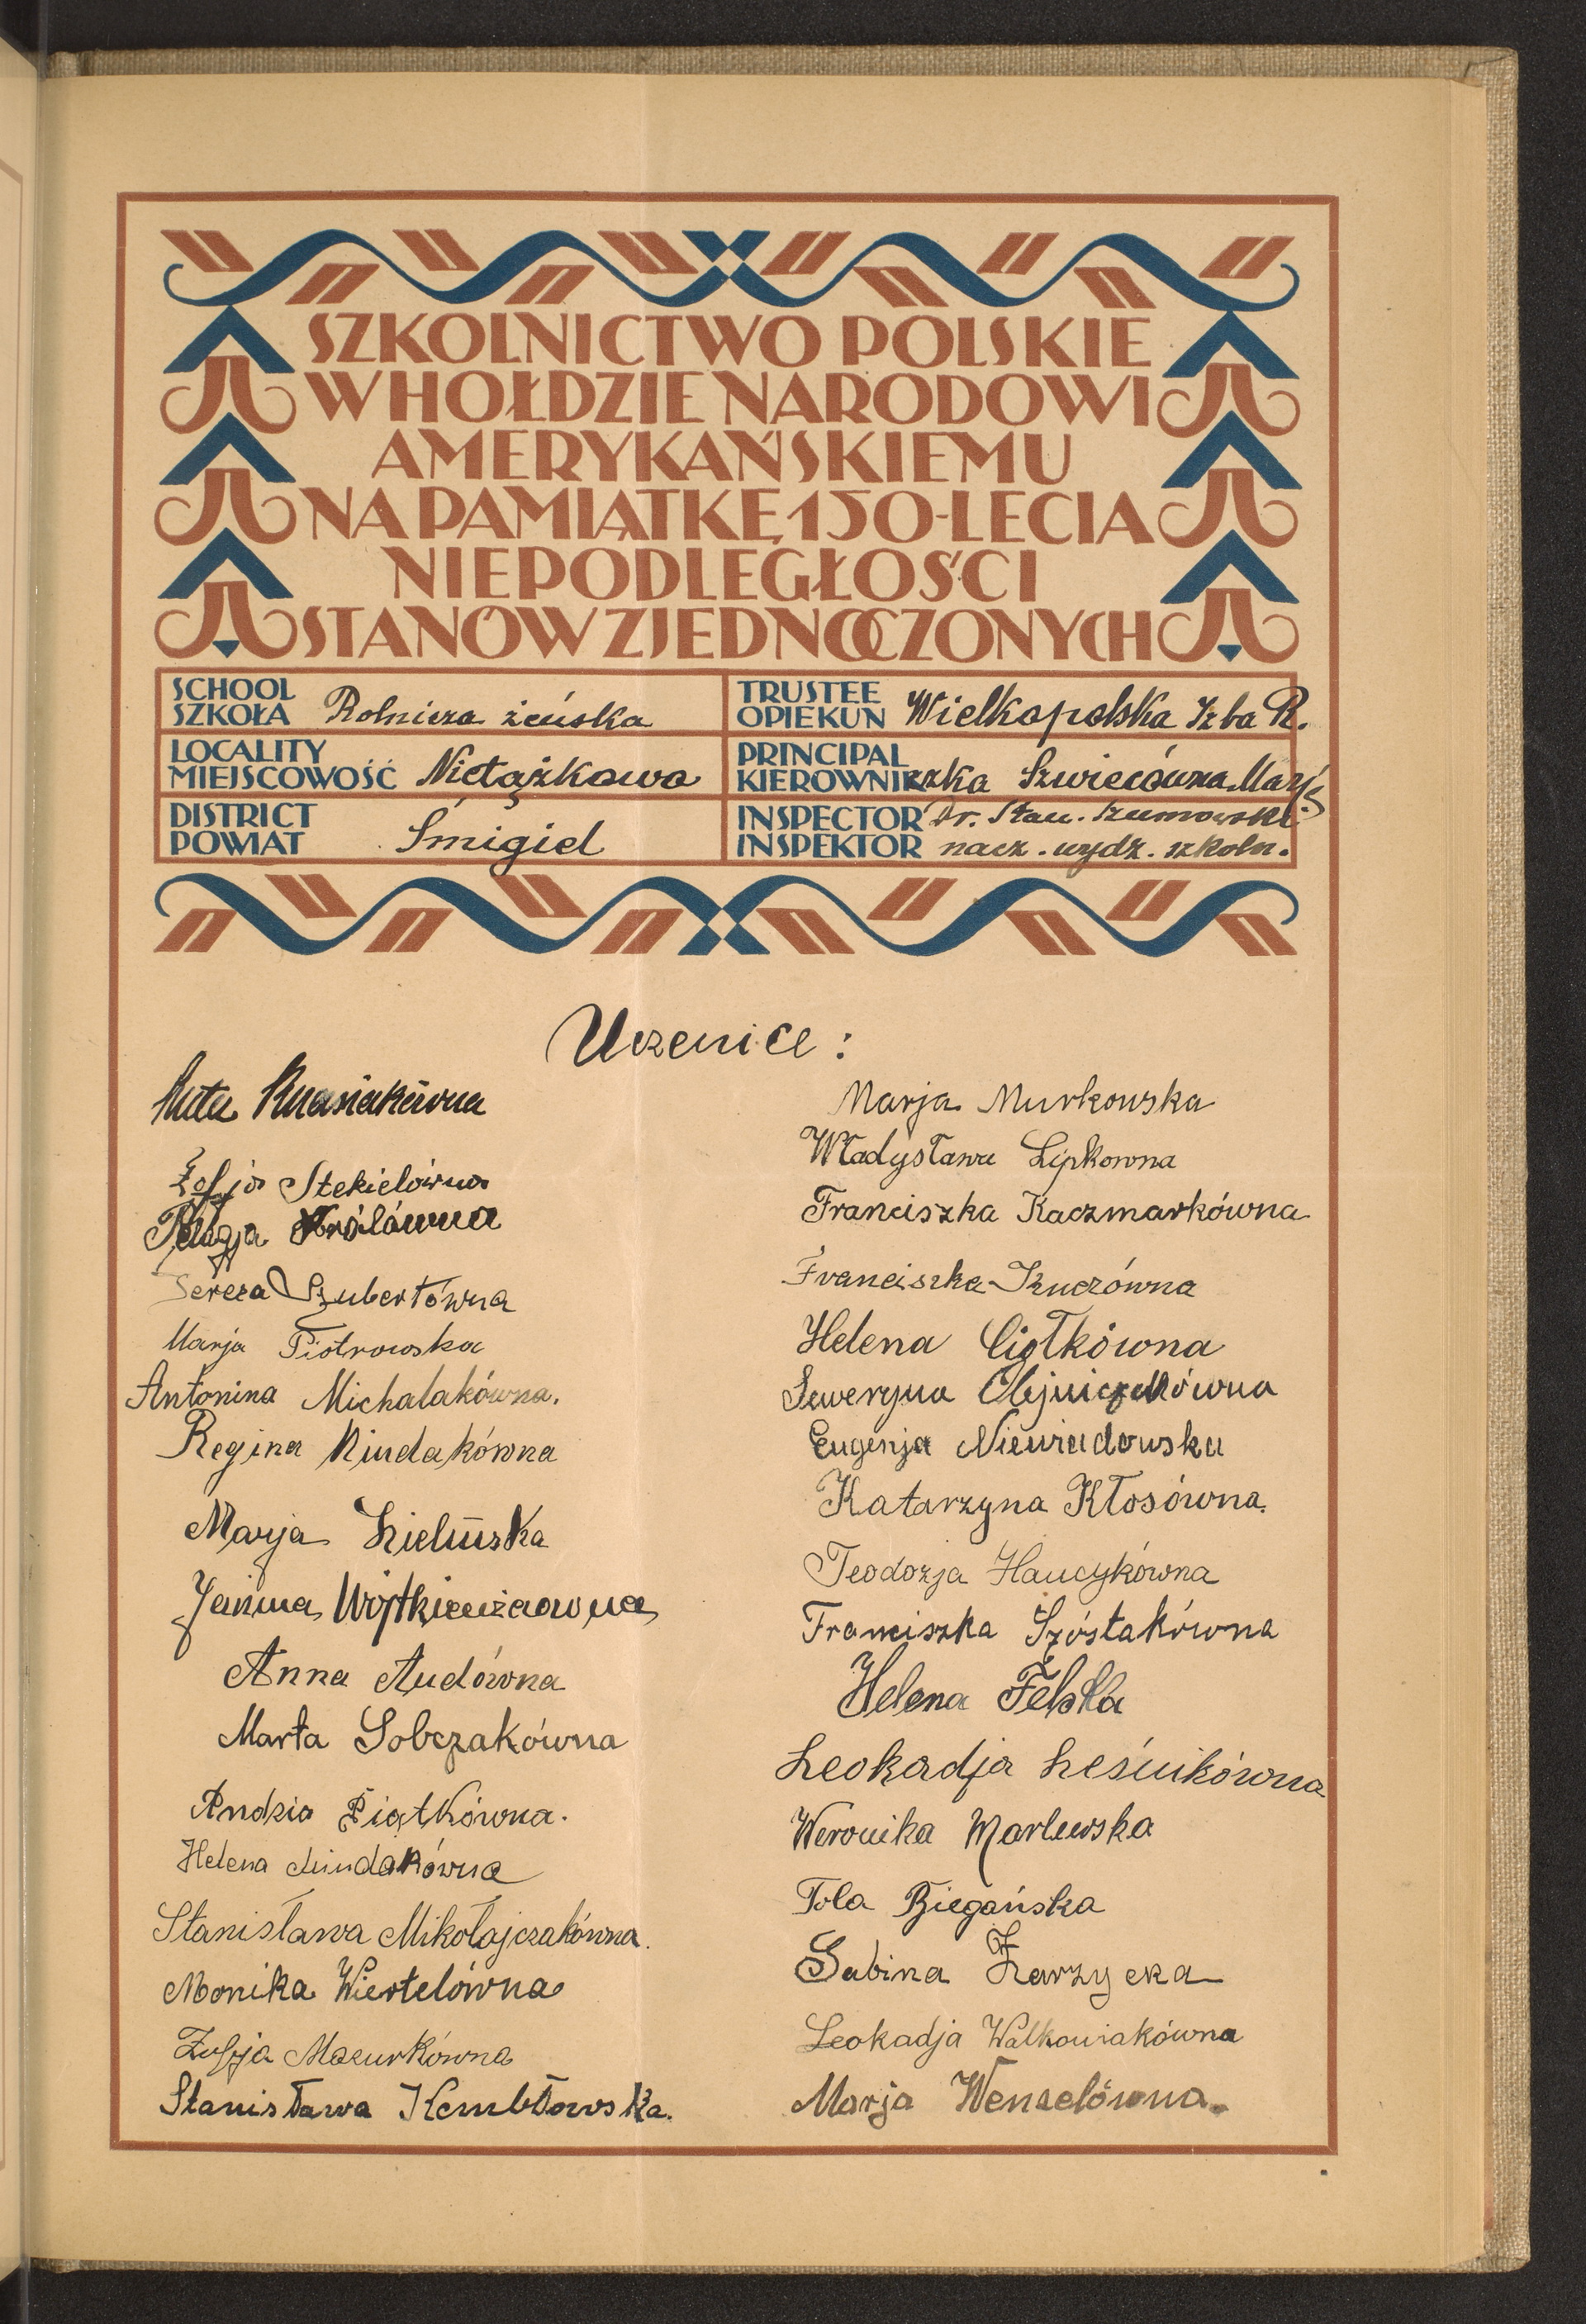 SZKOLNICTWO POLSKIE
W HOŁDZIE NARODOWI
AMERYKAŃSKIEMU
NA PAMIĄTKĘ 150-LECIA
NIEPODLEGŁOŚCI
STANÓW ZJEDNOCZONYCH
SCHOOL
SZKOŁA Rolnicza żeńska
TRUSTEE
OPIEKUN Wielkopolska Izba R.
LOCALITY
MIEJSCOWOŚĆ Nietążkowo
PRINCIPAL
KIEROWNICZKA Szwiecówna Marja
DISTRICT
POWIAT Śmigiel
INSPECTOR Dr. Stan. Szumowski
INSPEKTOR nacz. wydz. szkoln.
Uczenice:
Zofja Stekielówna
Pelagja Królówna
Tereza Szubertówna
Marja Piotrowska
Antonina Michalakówna.
Regina
Marja Zielińska
Janina
Anna Audówna
Marta Sobczakówna
Andzia Piątkówna.
Helena
Stanisława Mikołajczakówna.
Monika Wiertelówna
Zofja Mazurkówna
Stanisława Kembłowska.
Marja Murkowska
Władysława Lipkowna
Franciszka Kaczmarkówna
Franciszka
Helena Ciołkówna
Seweryna Olejniczakówna
Eugenja Niewiadowska
Katarzyna Kłosówna.
Teodozja Hancykówna
Franciszka Szóstakówna
Helena Felska
Leokadja Leśnikówna
Weronika Marlewska
Tola Biegańska
Sabina Zarzycka
Leokadja Walkowiakówna
Marja Wenzelówna.